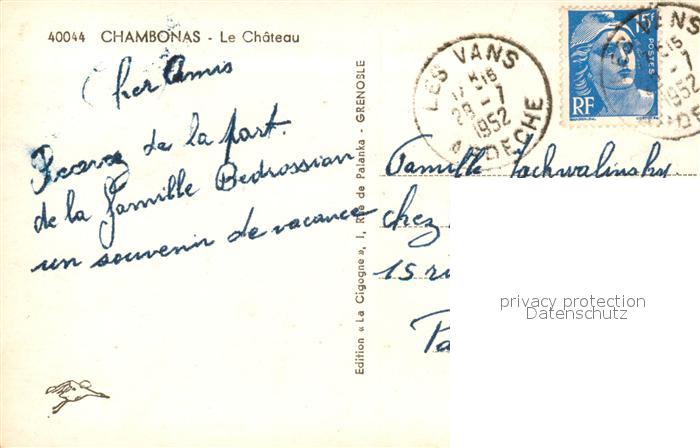 40044 CHAMBONAS - Le Château
Cher Amis
de la part.
de la famille Bedrossian
un souvenir de vacance
Edition « La Cigogne », 1, Rue de Palanka - GRENOBLE
LES VANS
28-7
1952
ARDECHE
15F
POSTES
RF
LES VANS
1952
Famille
chez
15
privacy protection
Datenschutz